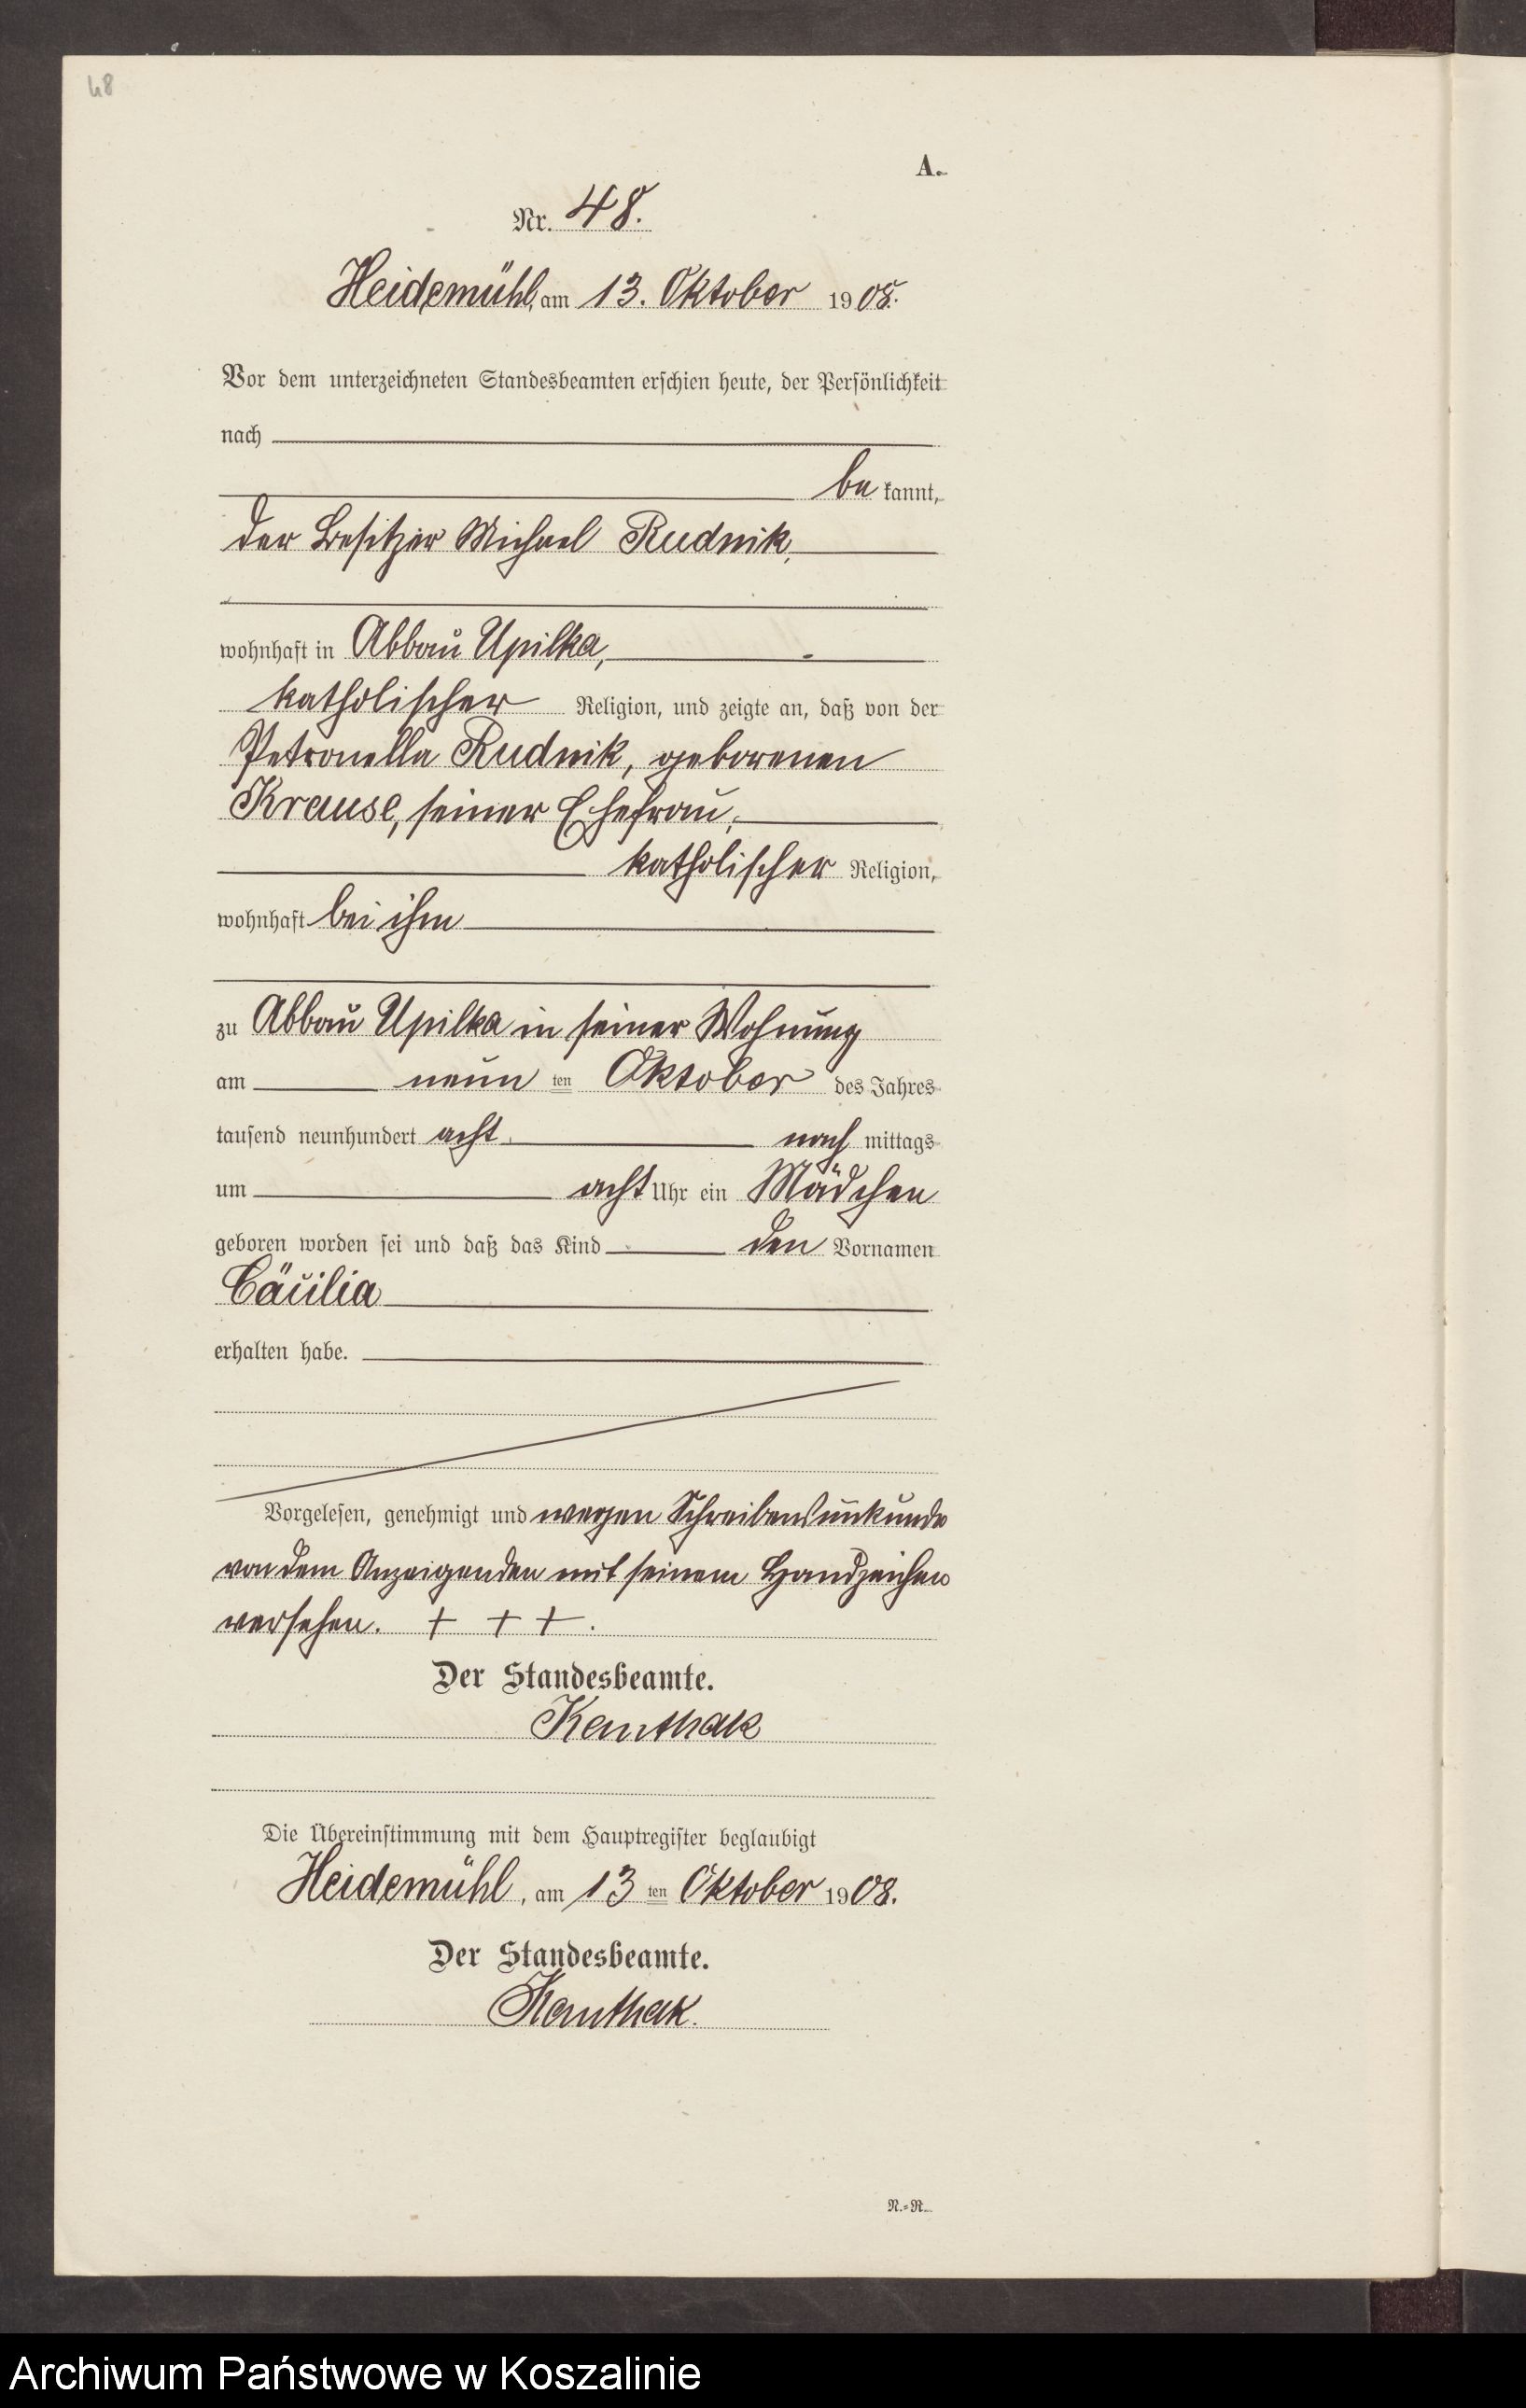 48
A.
Nr. 48.
Heidemühl, am 13. Oktober 1908.
Vor dem unterzeichneten Standesbeamten erschien heute, der Persönlichkeit
nach
be kannt,
der Besitzer Michael Rudnik,
wohnhaft in Abbau Upilka,
katholischer Religion, und zeigte an, daß von der
Petronella Rudnik, geborenen
Krause, seiner Ehefrau,
katholischer Religion,
wohnhaft bei ihm
zu Abbau Upilka in seiner Wohnung
am neun ten Oktober des Jahres
tausend neunhundert acht nach mittags
um acht Uhr ein Mädchen
geboren worden sei und daß das Kind den Vornamen
Cäcilia
erhalten habe.
Vorgelesen, genehmigt und wegen Schreibensunkunde
von dem Anzeigenden mit seinem Handzeichen
versehen. + + + .
Der Standesbeamte.
Kanthak
Die Übereinstimmung mit dem Hauptregister beglaubigt
Heidemühl, am 13 ten Oktober 1908.
Der Standesbeamte.
Kanthak.
N.=R.
Archiwum Państwowe w Koszalinie